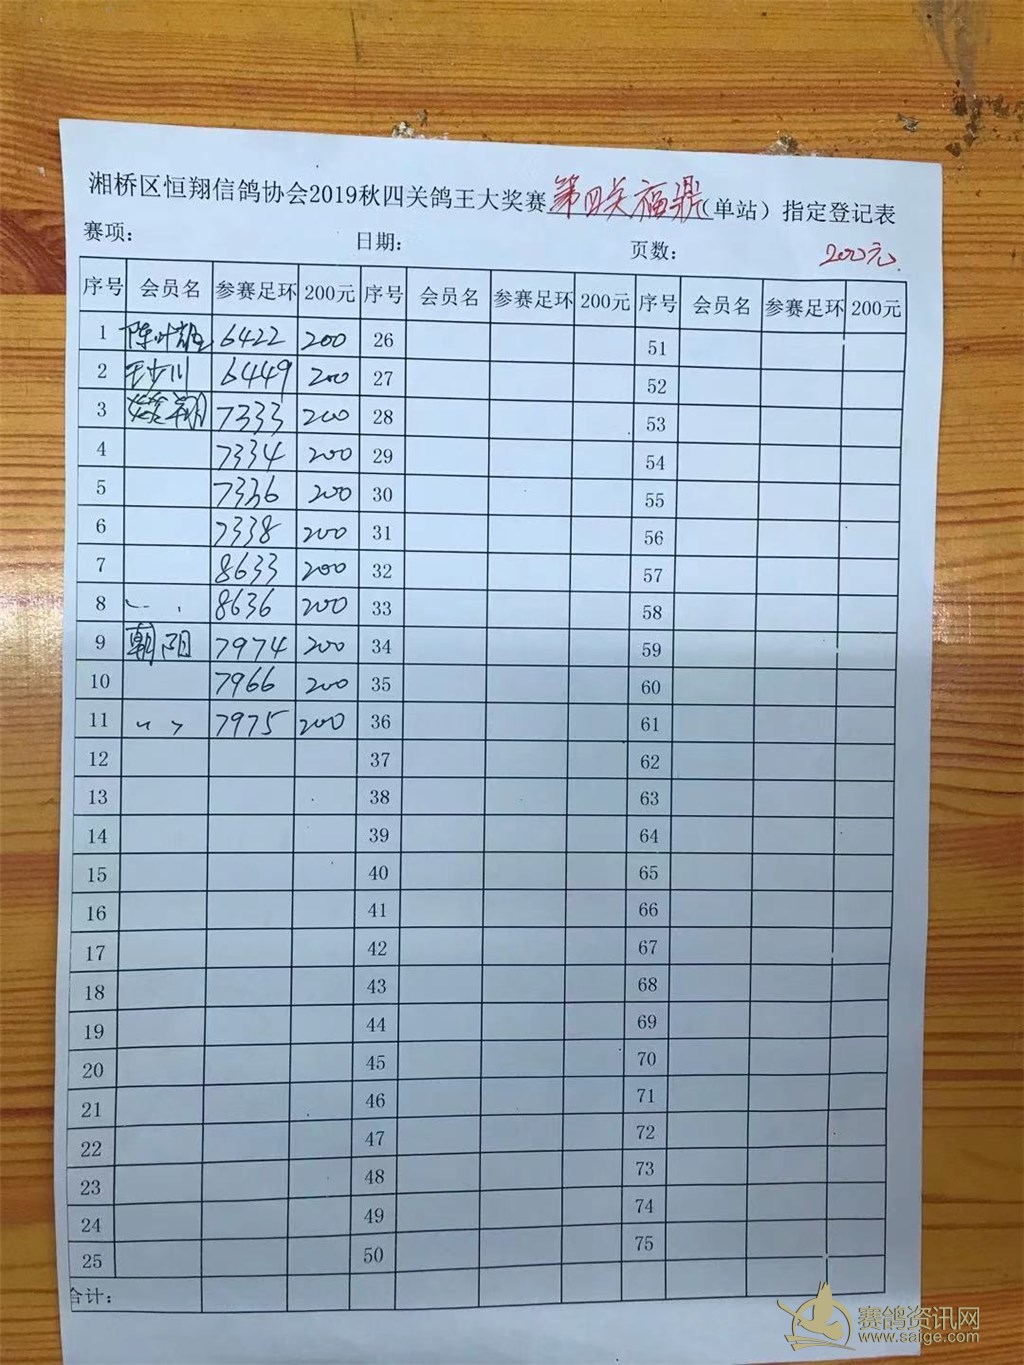 湘桥区恒翔信鸽协会2019秋四关鸽王大奖赛第四关福鼎(单站）指定登记表
赛项: 日期: 页数: 200元
序号 会员名 参赛足环 200元 序号 会员名 参赛足环 200元 序号 会员名 参赛足环 200元
1 陈叶雄 6422 200 26 51
2 王少川 6449 200 27 52
3 翔 7333 200 28 53
4 7334 200 29 54
5 7336 200 30 55
6 7338 200 31 56
7 8633 200 32 57
8 8636 200 33 58
9 朝阳 7974 200 34 59
10 7966 200 35 60
11 〃 7975 200 36 61
12 37 62
13 38 63
14 39 64
15 40 65
16 41 66
17 42 67
18 43 68
19 44 69
20 45 70
21 46 71
22 47 72
23 48 73
24 49 74
25 50 75
合计:
赛鸽资讯网
www.saige.com